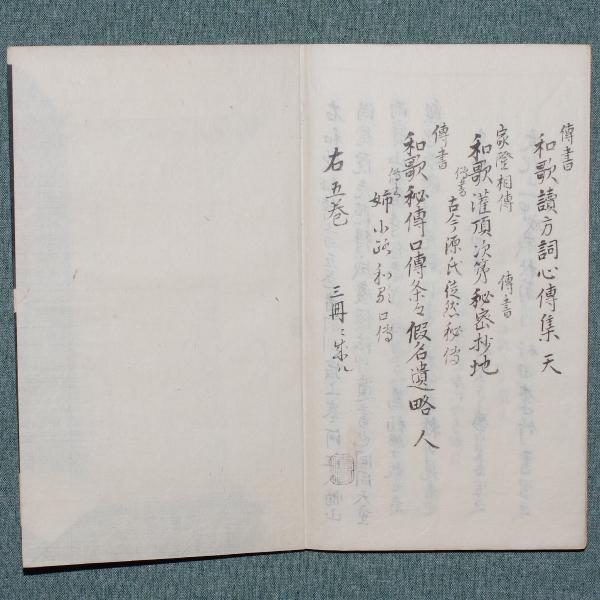 傳書
和歌讀方詞心傳集 天
家隆相傳
傳書
和歌灌頂次第秘密抄 地
傳書
古今源氏徒然秘傳
傳書
和歌秘傳口傳条々假名遺略 人
姉小路和歌口傳
右五巻 三冊ニ